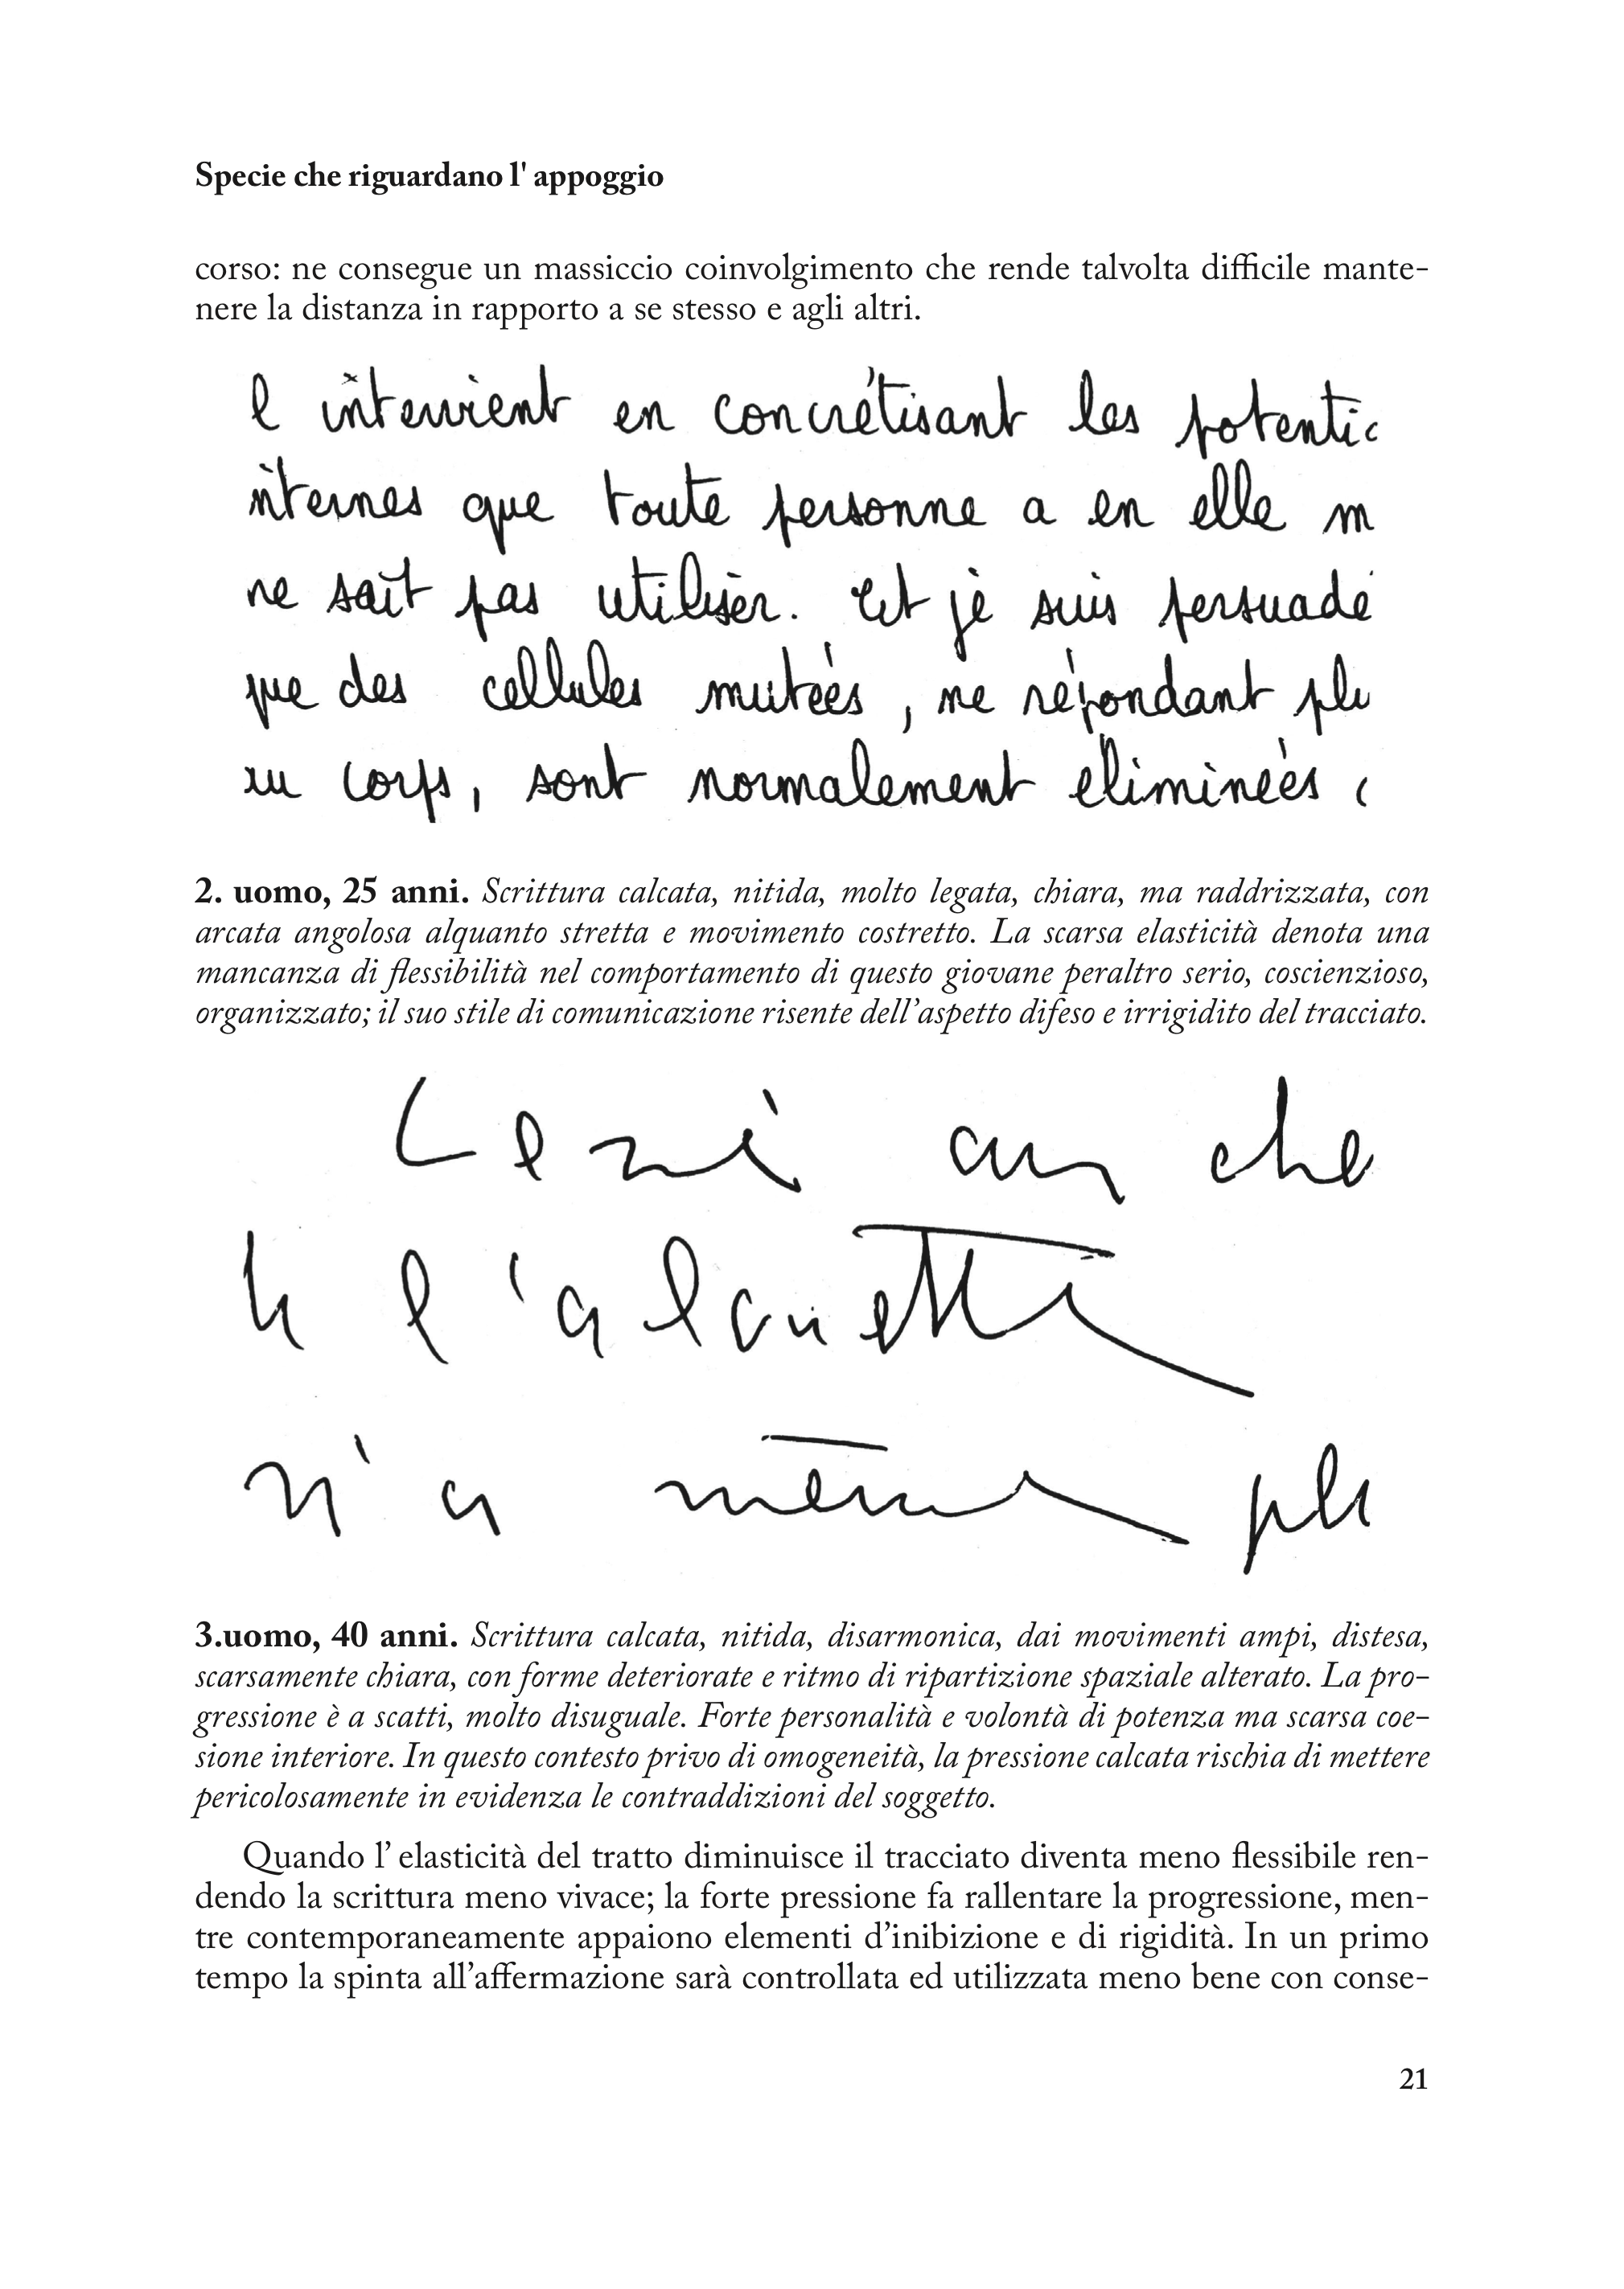 Specie che riguardano l' appoggio
corso: ne consegue un massiccio coinvolgimento che rende talvolta difficile mante-
nere la distanza in rapporto a se stesso e agli altri.
l intervient en concrétisant les potentie
nternes que toute personne a en elle m
ne sait pas utiliser. Et je suis persuadé
que des cellules mutées, ne répondant plu
au corps, sont normalement éliminées
2. uomo, 25 anni. Scrittura calcata, nitida, molto legata, chiara, ma raddrizzata, con
arcata angolosa alquanto stretta e movimento costretto. La scarsa elasticità denota una
mancanza di flessibilità nel comportamento di questo giovane peraltro serio, coscienzioso,
organizzato; il suo stile di comunicazione risente dell'aspetto difeso e irrigidito del tracciato.
che
l'alouette
n'a même plu
3.uomo, 40 anni. Scrittura calcata, nitida, disarmonica, dai movimenti ampi, distesa,
scarsamente chiara, con forme deteriorate e ritmo di ripartizione spaziale alterato. La pro-
gressione è a scatti, molto disuguale. Forte personalità e volontà di potenza ma scarsa coe-
sione interiore. In questo contesto privo di omogeneità, la pressione calcata rischia di mettere
pericolosamente in evidenza le contraddizioni del soggetto.
Quando l' elasticità del tratto diminuisce il tracciato diventa meno flessibile ren-
dendo la scrittura meno vivace; la forte pressione fa rallentare la progressione, men-
tre contemporaneamente appaiono elementi d'inibizione e di rigidità. In un primo
tempo la spinta all'affermazione sarà controllata ed utilizzata meno bene con conse-
21